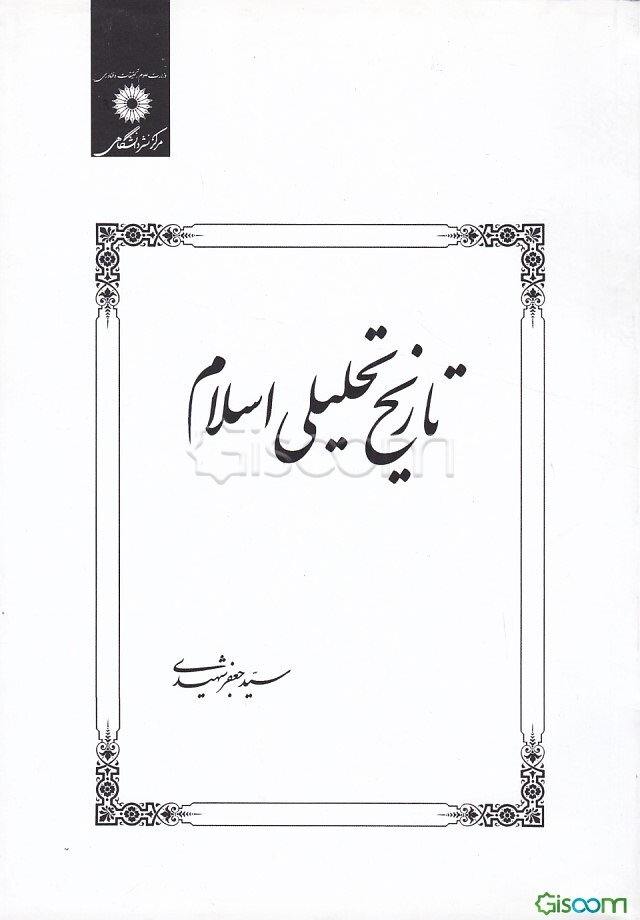 وزارت علوم، تحقیقات و فناوری
مرکز نشر دانشگاهی
تاریخ تحلیلی اسلام
Gisoom
سید جعفر شهیدی
Gisoom